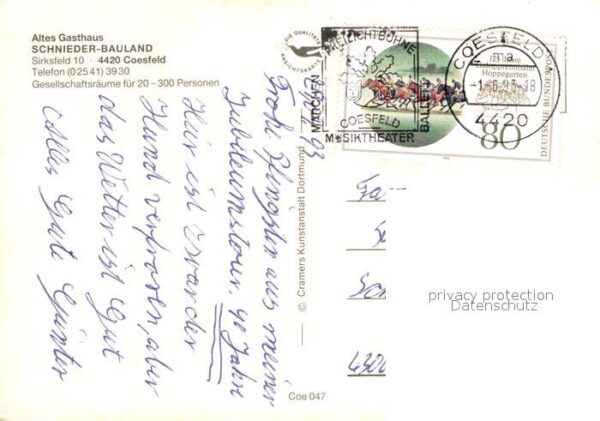 Altes Gasthaus
SCHNIEDER-BAULAND
Sirksfeld 10 · 4420 Coesfeld
Telefon (0 25 41) 39 30
Gesellschaftsräume für 20–300 Personen
DIE QUALITÄTS
ANSICHTSKARTE
FREILICHTBÜHNE
COESFELD
MÄRCHEN
BALLETT
MUSIKTHEATER
COESFELD
ma
4420
125 Jahre
Hoppegarten
80
DEUTSCHE BUNDESPOST
93
Frohe Pfingsten aus meiner
Jubiläumstour. 40 Jahre
Hier ist zwar der
Hund verfroren, aber
das Wetter ist Gut
Alles Gute Günter
© Cramers Kunstanstalt Dortmund
Coe 047
Fa
4300
privacy protection
Datenschutz